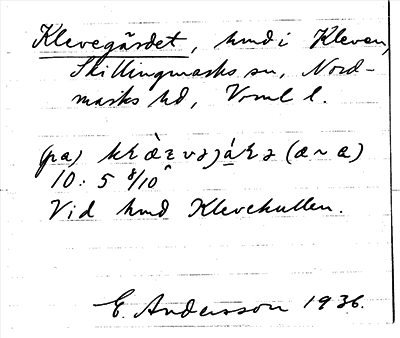 Klevegärdet, hmd i Kleven,
Skillingmarks sn, Nord-
marks hd, Vrml l.
(pa)
10: 5 8/10
Vid hmd Klevekullen.
E. Andersson 1936.